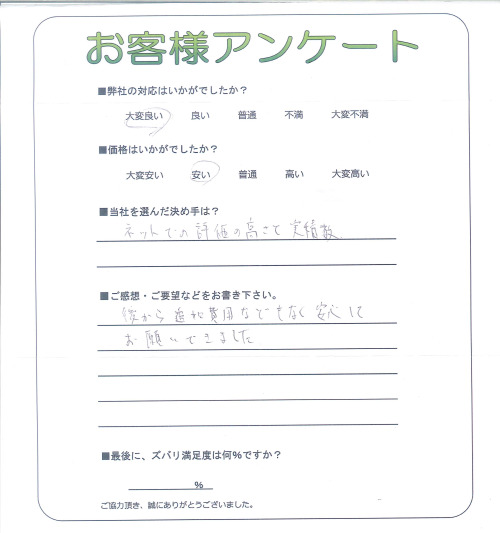 お客様アンケート
■弊社の対応はいかがでしたか？
大変良い 良い 普通 不満 大変不満
■価格はいかがでしたか？
大変安い 安い 普通 高い 大変高い
■当社を選んだ決め手は？
ネットでの評価の高さと実績数
■ご感想・ご要望などをお書き下さい。
後から追加費用などもなく安心して
お願いできました
■最後に、ズバリ満足度は何%ですか？
%
ご協力頂き、誠にありがとうございました。